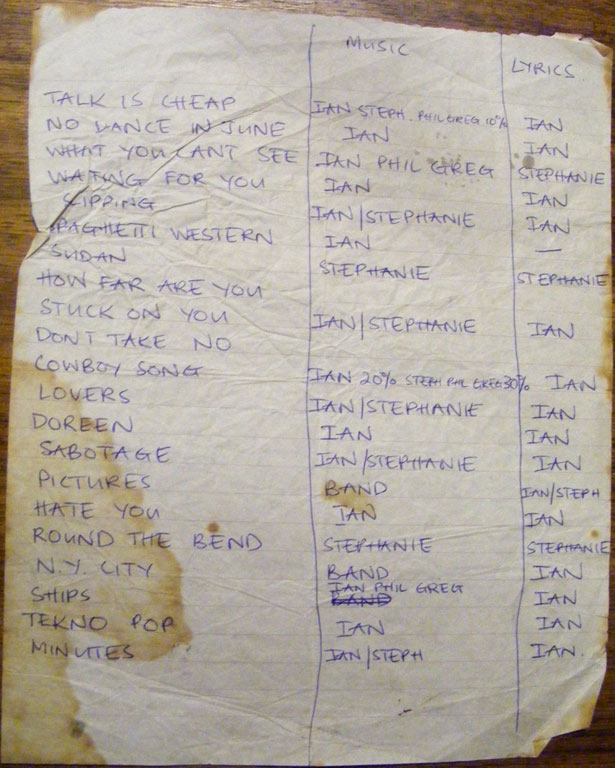 MUSIC LYRICS
TALK IS CHEAP IAN STEPH. PHIL GREG 10% IAN
NO DANCE IN JUNE IAN IAN
WHAT YOU CANT SEE IAN PHIL GREG STEPHANIE
WAITING FOR YOU IAN IAN
SLIPPING IAN/STEPHANIE IAN
SPAGHETTI WESTERN IAN —
SUDAN STEPHANIE STEPHANIE
HOW FAR ARE YOU
STUCK ON YOU IAN/STEPHANIE IAN
DONT TAKE NO
COWBOY SONG IAN 20% STEPH PHIL GREG 30% IAN
LOVERS IAN/STEPHANIE IAN
DOREEN IAN IAN
SABOTAGE IAN/STEPHANIE IAN
PICTURES BAND IAN/STEPH
HATE YOU IAN IAN
ROUND THE BEND STEPHANIE STEPHANIE
N.Y. CITY BAND IAN
IAN PHIL GREG
SHIPS BAND IAN
TEKNO POP IAN IAN
MINUTES IAN/STEPH IAN.